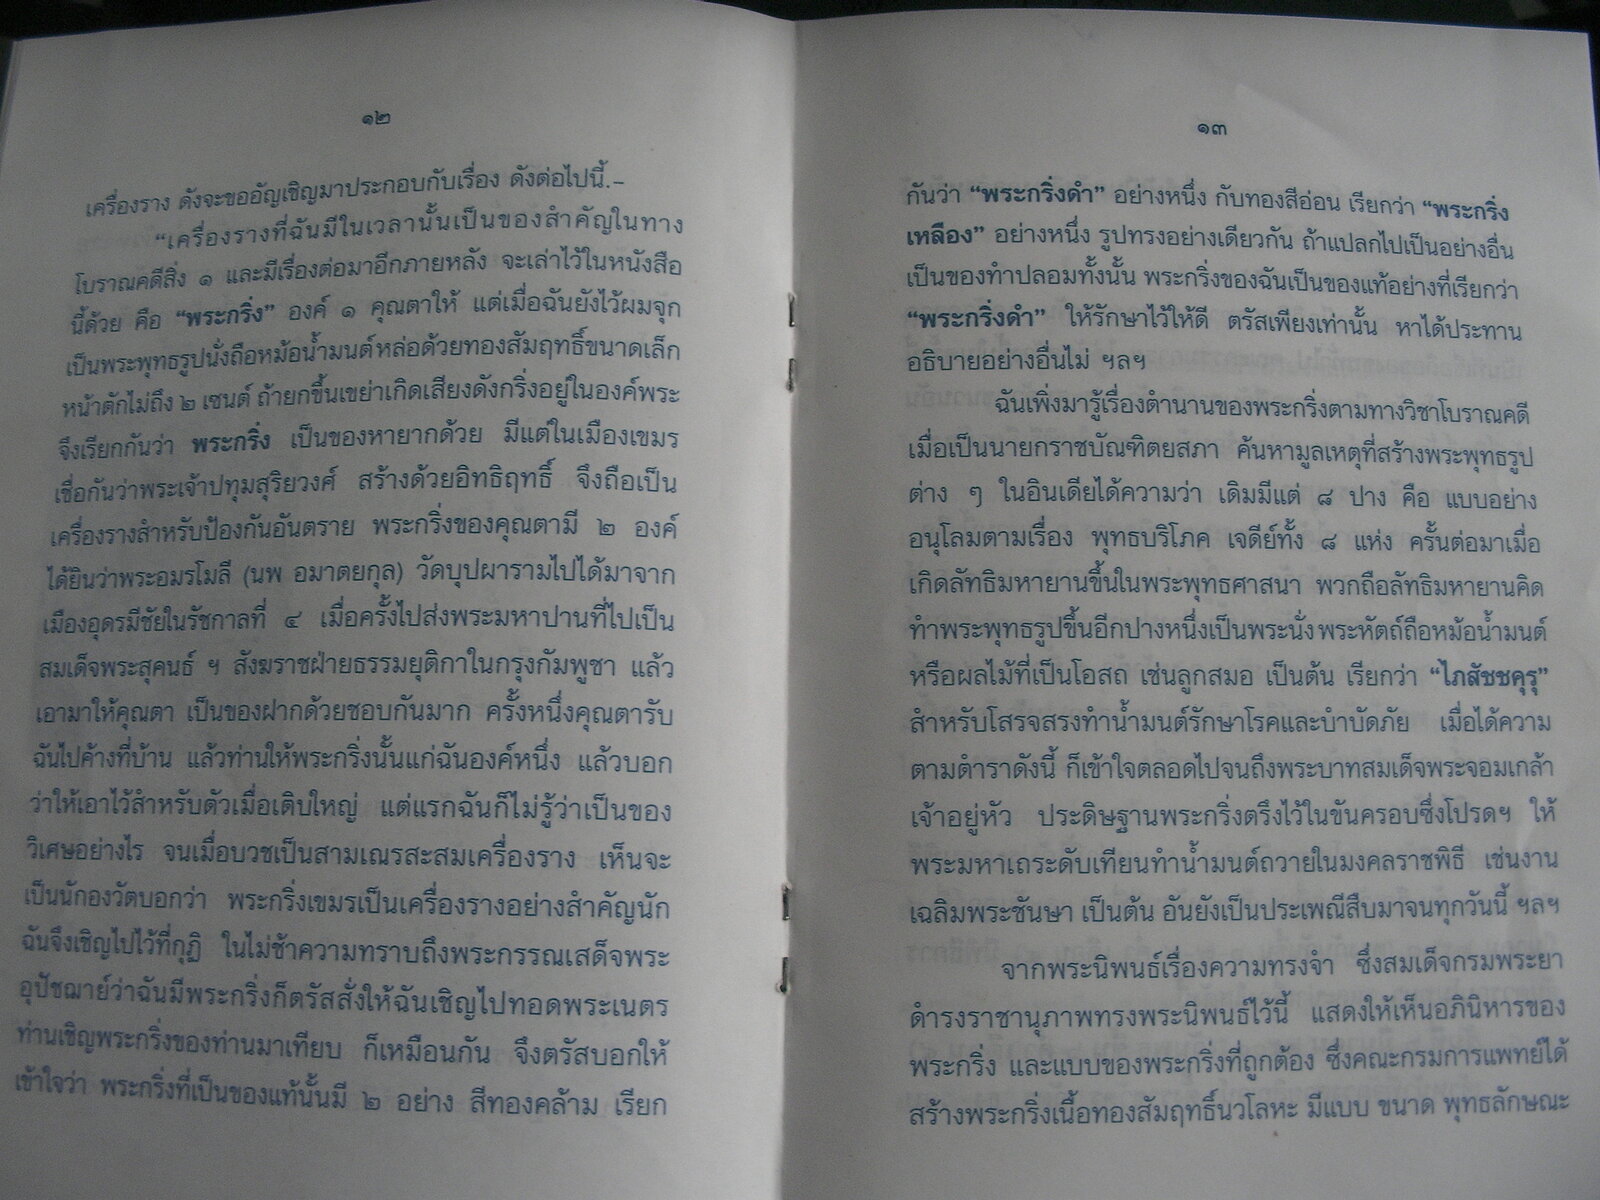 ๑๒
เครื่องราง ดังจะขออัญเชิญมาประกอบกับเรื่อง ดังต่อไปนี้.–
“เครื่องรางที่ฉันมีในเวลานั้นเป็นของสำคัญในทาง
โบราณคดีสิ่ง ๑ และมีเรื่องต่อมาอีกภายหลัง จะเล่าไว้ในหนังสือ
นี้ด้วย คือ “พระกริ่ง” องค์ ๑ คุณตาให้ แต่เมื่อฉันยังไว้ผมจุก
เป็นพระพุทธรูปนั่งถือหม้อน้ำมนต์หล่อด้วยทองสัมฤทธิ์ขนาดเล็ก
หน้าตักไม่ถึง ๒ เซนต์ ถ้ายกขึ้นเขย่าเกิดเสียงดังกริ่งอยู่ในองค์พระ
จึงเรียกกันว่า พระกริ่ง เป็นของหายากด้วย มีแต่ในเมืองเขมร
เชื่อกันว่าพระเจ้าปทุมสุริยวงศ์ สร้างด้วยอิทธิฤทธิ์ จึงถือเป็น
เครื่องรางสำหรับป้องกันอันตราย พระกริ่งของคุณตามี ๒ องค์
ได้ยินว่าพระอมรโมลี (นพ อมาตยกุล) วัดบุปผารามไปได้มาจาก
เมืองอุดรมีชัยในรัชกาลที่ ๔ เมื่อครั้งไปส่งพระมหาปานที่ไปเป็น
สมเด็จพระสุคนธ์ ฯ สังฆราชฝ่ายธรรมยุติกาในกรุงกัมพูชา แล้ว
เอามาให้คุณตา เป็นของฝากด้วยชอบกันมาก ครั้งหนึ่งคุณตารับ
ฉันไปค้างที่บ้าน แล้วท่านให้พระกริ่งนั้นแก่ฉันองค์หนึ่ง แล้วบอก
ว่าให้เอาไว้สำหรับตัวเมื่อเติบใหญ่ แต่แรกฉันก็ไม่รู้ว่าเป็นของ
วิเศษอย่างไร จนเมื่อบวชเป็นสามเณรสะสมเครื่องราง เห็นจะ
เป็นนักองวัตบอกว่า พระกริ่งเขมรเป็นเครื่องรางอย่างสำคัญนัก
ฉันจึงเชิญไปไว้ที่กุฏิ ในไม่ช้าความทราบถึงพระกรรณเสด็จพระ
อุปัชฌาย์ว่าฉันมีพระกริ่งก็ตรัสสั่งให้ฉันเชิญไปทอดพระเนตร
ท่านเชิญพระกริ่งของท่านมาเทียบ ก็เหมือนกัน จึงตรัสบอกให้
เข้าใจว่า พระกริ่งที่เป็นของแท้นั้นมี ๒ อย่าง สีทองคล้าม เรียก
๑๓
กันว่า “พระกริ่งดำ” อย่างหนึ่ง กับทองสีอ่อน เรียกว่า “พระกริ่ง
เหลือง” อย่างหนึ่ง รูปทรงอย่างเดียวกัน ถ้าแปลกไปเป็นอย่างอื่น
เป็นของทำปลอมทั้งนั้น พระกริ่งของฉันเป็นของแท้อย่างที่เรียกว่า
“พระกริ่งดำ” ให้รักษาไว้ให้ดี ตรัสเพียงเท่านั้น หาได้ประทาน
อธิบายอย่างอื่นไม่ ฯลฯ
ฉันเพิ่งมารู้เรื่องตำนานของพระกริ่งตามทางวิชาโบราณคดี
เมื่อเป็นนายกราชบัณฑิตยสภา ค้นหามูลเหตุที่สร้างพระพุทธรูป
ต่าง ๆ ในอินเดียได้ความว่า เดิมมีแต่ ๘ ปาง คือ แบบอย่าง
อนุโลมตามเรื่อง พุทธบริโภค เจดีย์ทั้ง ๘ แห่ง ครั้นต่อมาเมื่อ
เกิดลัทธิมหายานขึ้นในพระพุทธศาสนา พวกถือลัทธิมหายานคิด
ทำพระพุทธรูปขึ้นอีกปางหนึ่งเป็นพระนั่ง พระหัตถ์ถือหม้อน้ำมนต์
หรือผลไม้ที่เป็นโอสถ เช่นลูกสมอ เป็นต้น เรียกว่า “ไภสัชชคุรุ”
สำหรับโสรจสรงทำน้ำมนต์รักษาโรคและบำบัดภัย เมื่อได้ความ
ตามตำราดังนี้ ก็เข้าใจตลอดไปจนถึงพระบาทสมเด็จพระจอมเกล้า
เจ้าอยู่หัว ประดิษฐานพระกริ่งตรึงไว้ในขันครอบซึ่งโปรดฯ ให้
พระมหาเถระดับเทียนทำน้ำมนต์ถวายในมงคลราชพิธี เช่นงาน
เฉลิมพระชันษา เป็นต้น อันยังเป็นประเพณีสืบมาจนทุกวันนี้ ฯลฯ
จากพระนิพนธ์เรื่องความทรงจำ ซึ่งสมเด็จกรมพระยา
ดำรงราชานุภาพทรงพระนิพนธ์ไว้นี้ แสดงให้เห็นอภินิหารของ
พระกริ่ง และแบบของพระกริ่งที่ถูกต้อง ซึ่งคณะกรมการแพทย์ได้
สร้างพระกริ่งเนื้อทองสัมฤทธิ์นวโลหะ มีแบบ ขนาด พุทธลักษณะ